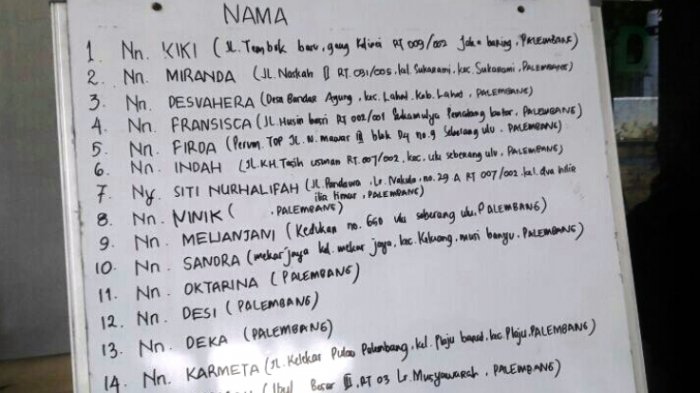 NAMA
1. Nn. KIKI (Jl. Tembok baru, gang RT 009/002 Jaka baring, PALEMBANG)
2. Nn. MIRANDA (JL. Naskah II RT. 031/005, kel. Sukarami, kec. Sukarami, PALEMBANG)
3. Nn. DESVAHERA (Desa Bandar Agung, kec. Lahat. Kab. Lahat, PALEMBANG)
4. Nn. FRANSISCA (JL. Husin basri RT 002/001 Sukamulya Pematang, PALEMBANG)
5. Nn. FIRDA (Perum. TOP JL. N. mawar blok D4 no. 9 Seberang ulu, PALEMBANG)
6. Nn. INDAH (JL. KH. Tasih usman RT. 007/002, kec. ulu seberang ulu, PALEMBANG)
7. Ny. SITI NURHALIFAH (JL. Pandawa, Lr. Nakula, no. 29 A RT 007/002. kel. dua
ilir timur, PALEMBANG)
8. Nn. NINIK ( , PALEMBANG)
9. Nn. MELIANJANI (Kedukan no. 660 ulu seberang ulu, PALEMBANG)
10. Nn. SANDRA (mekar jaya kel. mekar jaya, kec. Keluang, musi banyu, PALEMBANG)
11. Nn. OKTARINA (PALEMBANG)
12. Nn. DESI (PALEMBANG)
13. Nn. DEKA (PALEMBANG)
14. Nn. KARMETA (JL. Kelekar Pulau Palembang, kel. Plaju, kec. Plaju, PALEMBANG)
Besar III, RT 03 Lr. Musyawarah, PALEMBANG)